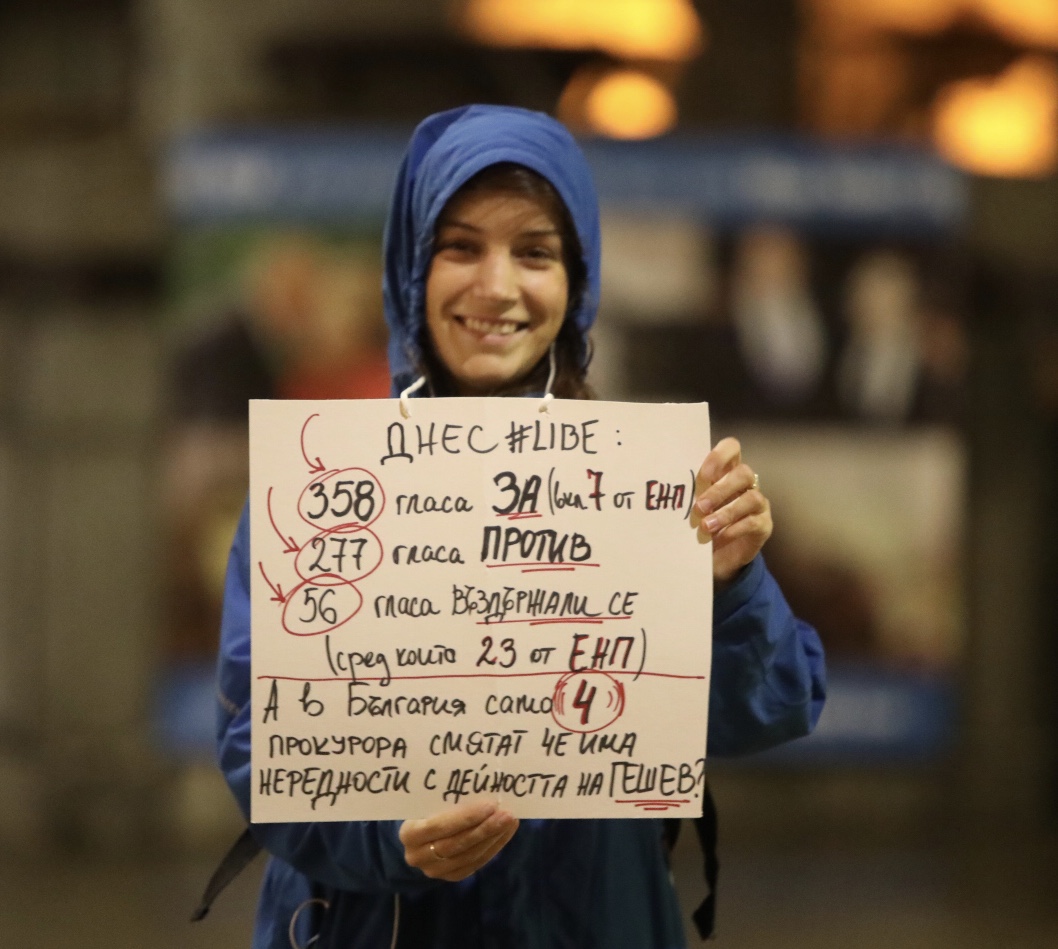 ДНЕС #LIBE:
358 гласа ЗА (вкл 7 от ЕНП)
277 гласа ПРОТИВ
56 гласа ВЪЗДЪРЖАЛИ СЕ
(сред които 23 от ЕНП)
А в България само 4
ПРОКУРОРА СМЯТАТ ЧЕ ИМА
НЕРЕДНОСТИ С ДЕЙНОСТТА НА ГЕШЕВ?